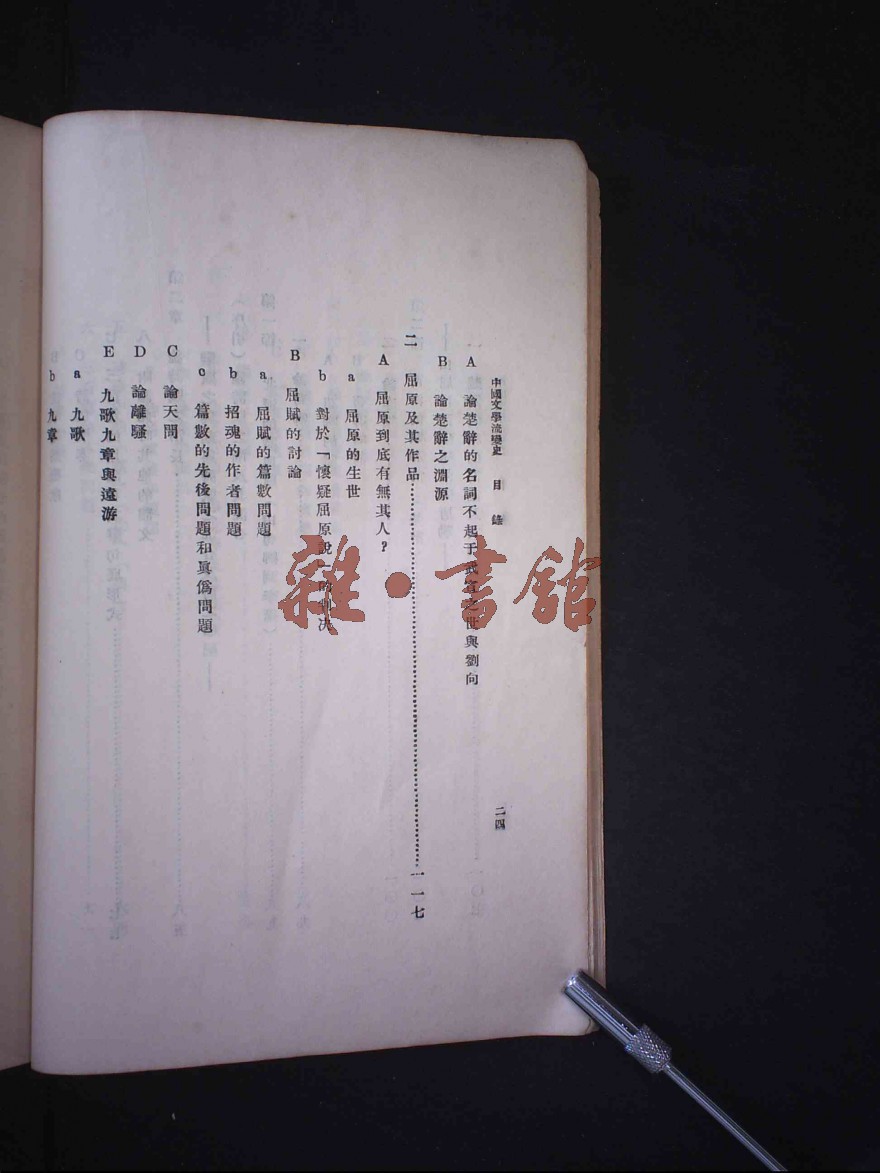 中國文學流變史　目錄
二四
A　論楚辭的名詞不起于武宣之世與劉向
B　論楚辭之淵源
二　屈原及其作品……一一七
A　屈原到底有無其人？
a　屈原的生世
b　對於「懷疑屈原說」的判决
B　屈賦的討論
a.　屈賦的篇數問題
b　招魂的作者問題
c　篇數的先後問題和眞僞問題
C　論天問
D　論離騷
E　九歌九章與遠游
a　九歌
b　九章
雜·書館